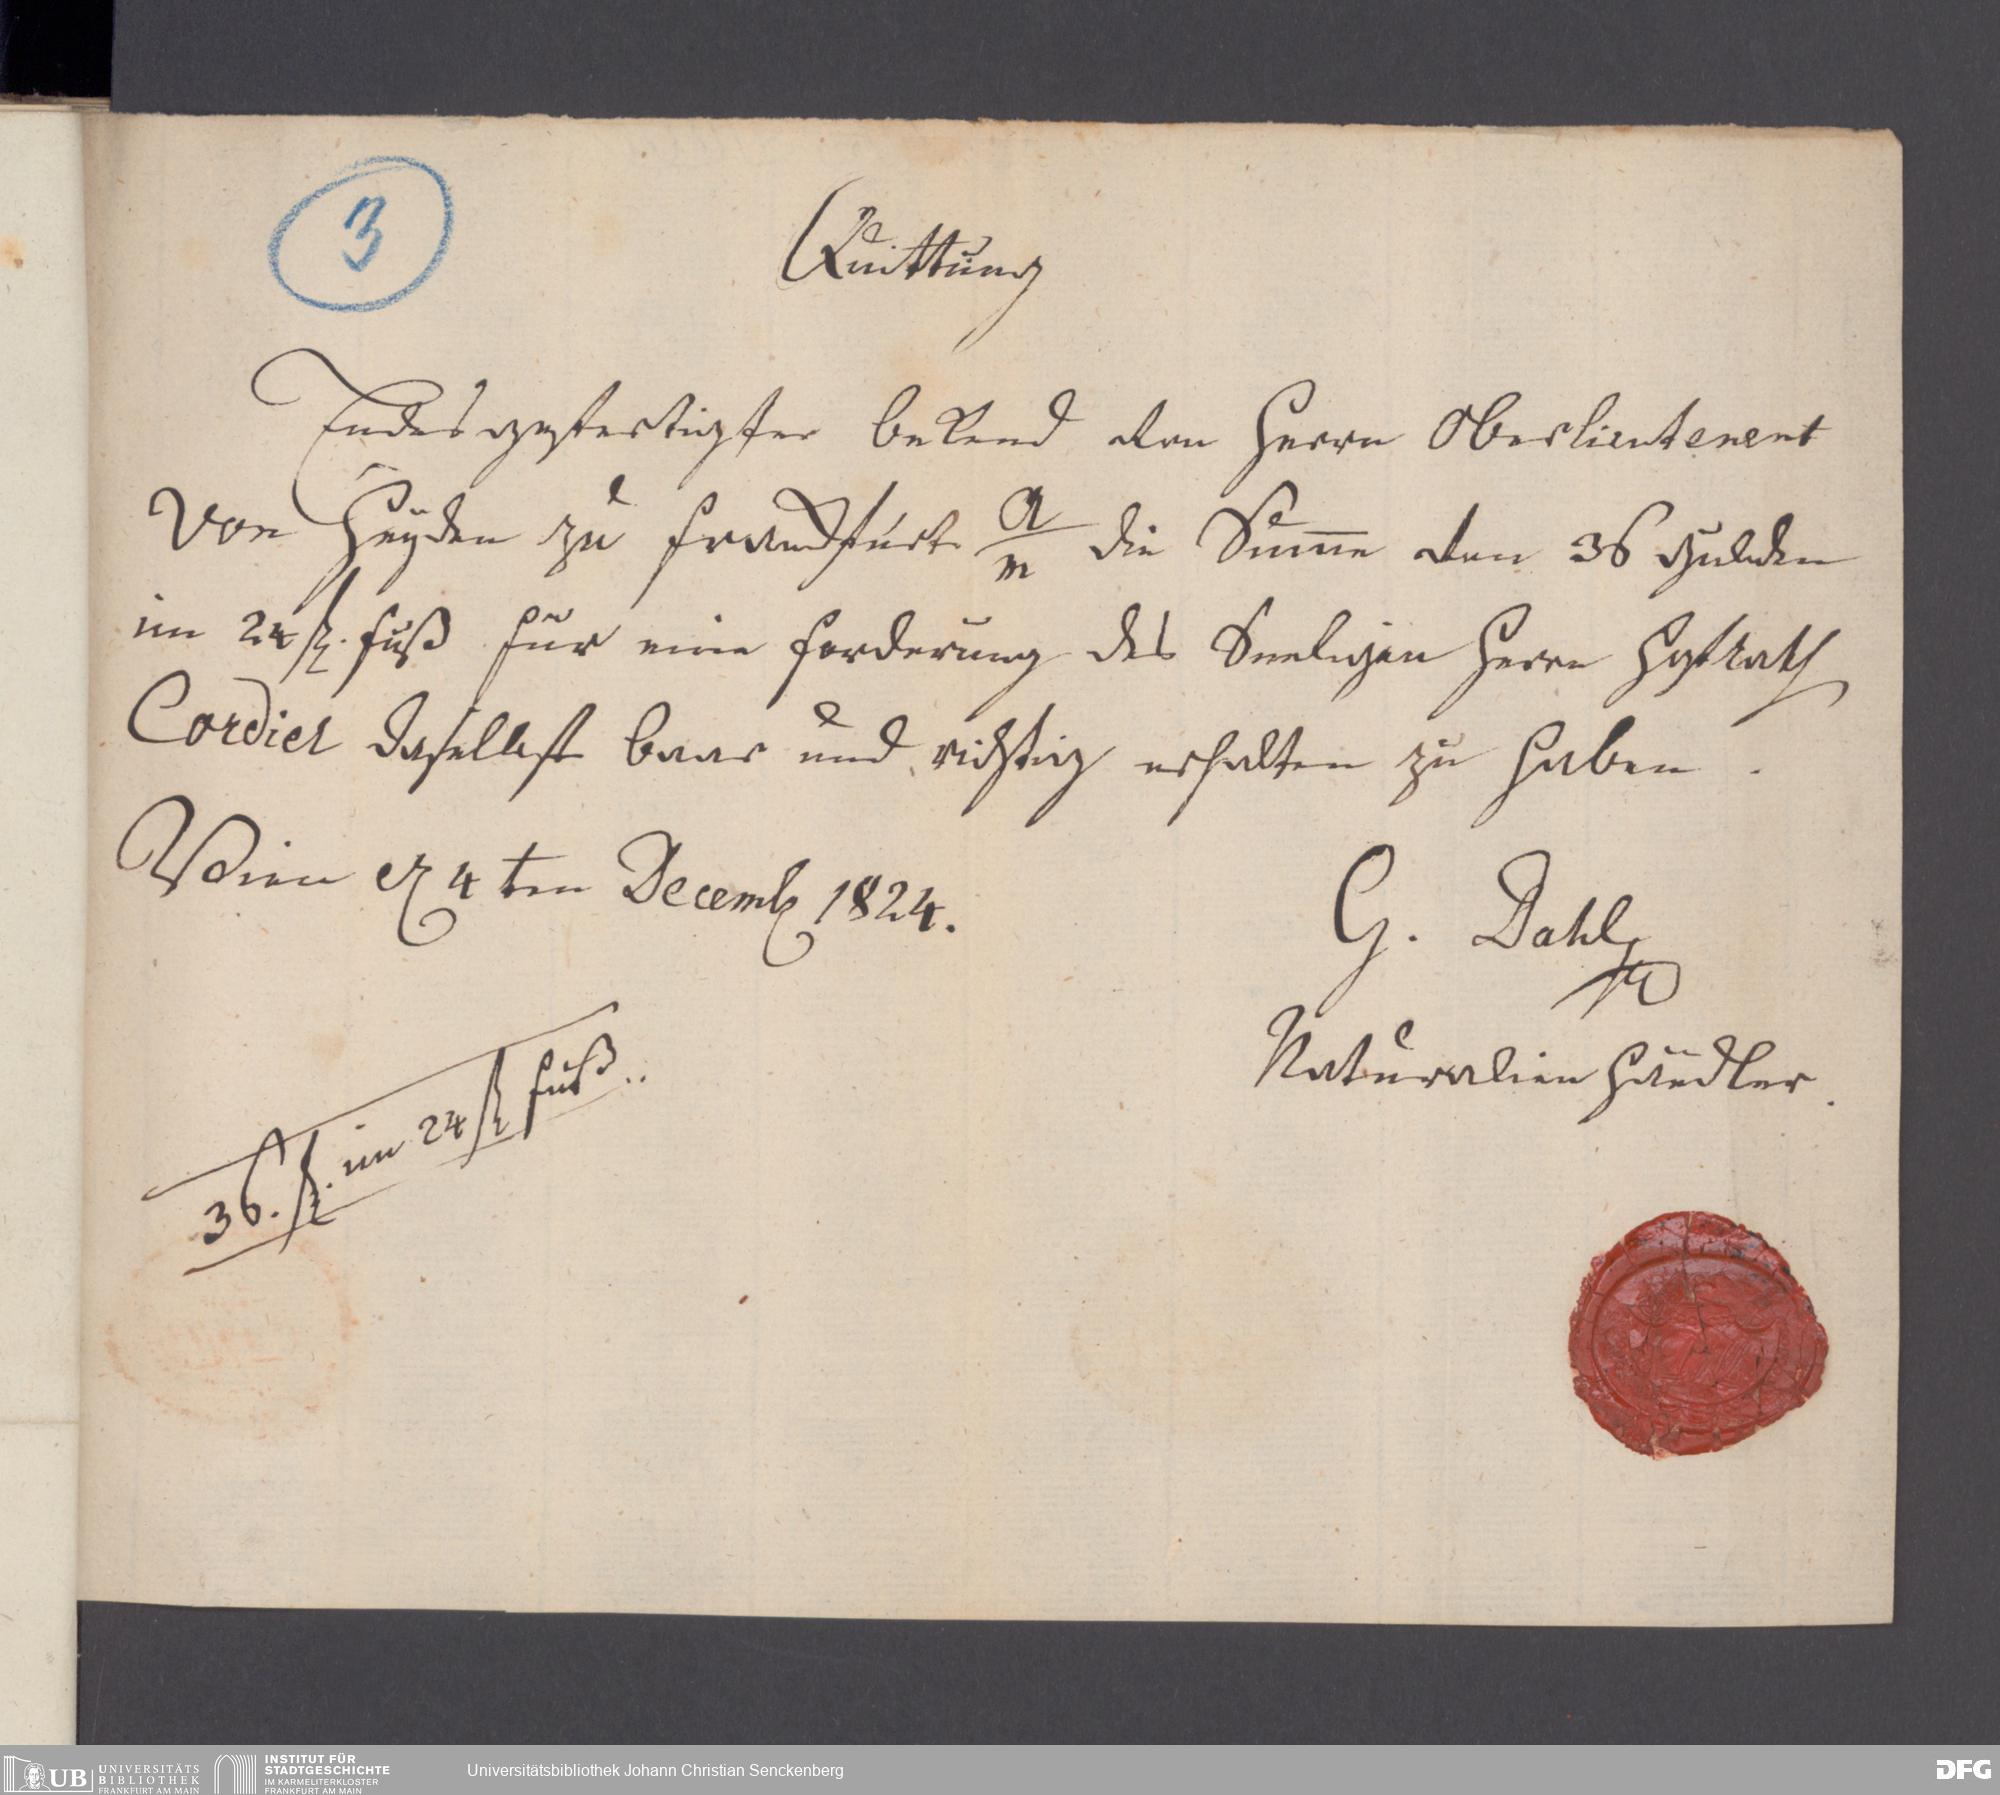 3
Quittung
Endesgefertigter bekend von Herrn Oberlieutenent
von Heÿden zu Franckfurt a/m die Sum̅e von 36 Gulden
im 24 fl. Fuß für eine Forderung des Seeligen Herrn Hofrath
Cordier daselbst baar und richtig erhalten zu haben.
Wien d 4ten Decemb 1824.
G. Dahl
Naturalien Händler.
36. fl. im 24 fl Fuß..
UB UNIVERSITÄTS
BIBLIOTHEK
FRANKFURT AM MAIN
INSTITUT FÜR
STADTGESCHICHTE
IM KARMELITERKLOSTER
FRANKFURT AM MAIN
Universitätsbibliothek Johann Christian Senckenberg
DFG